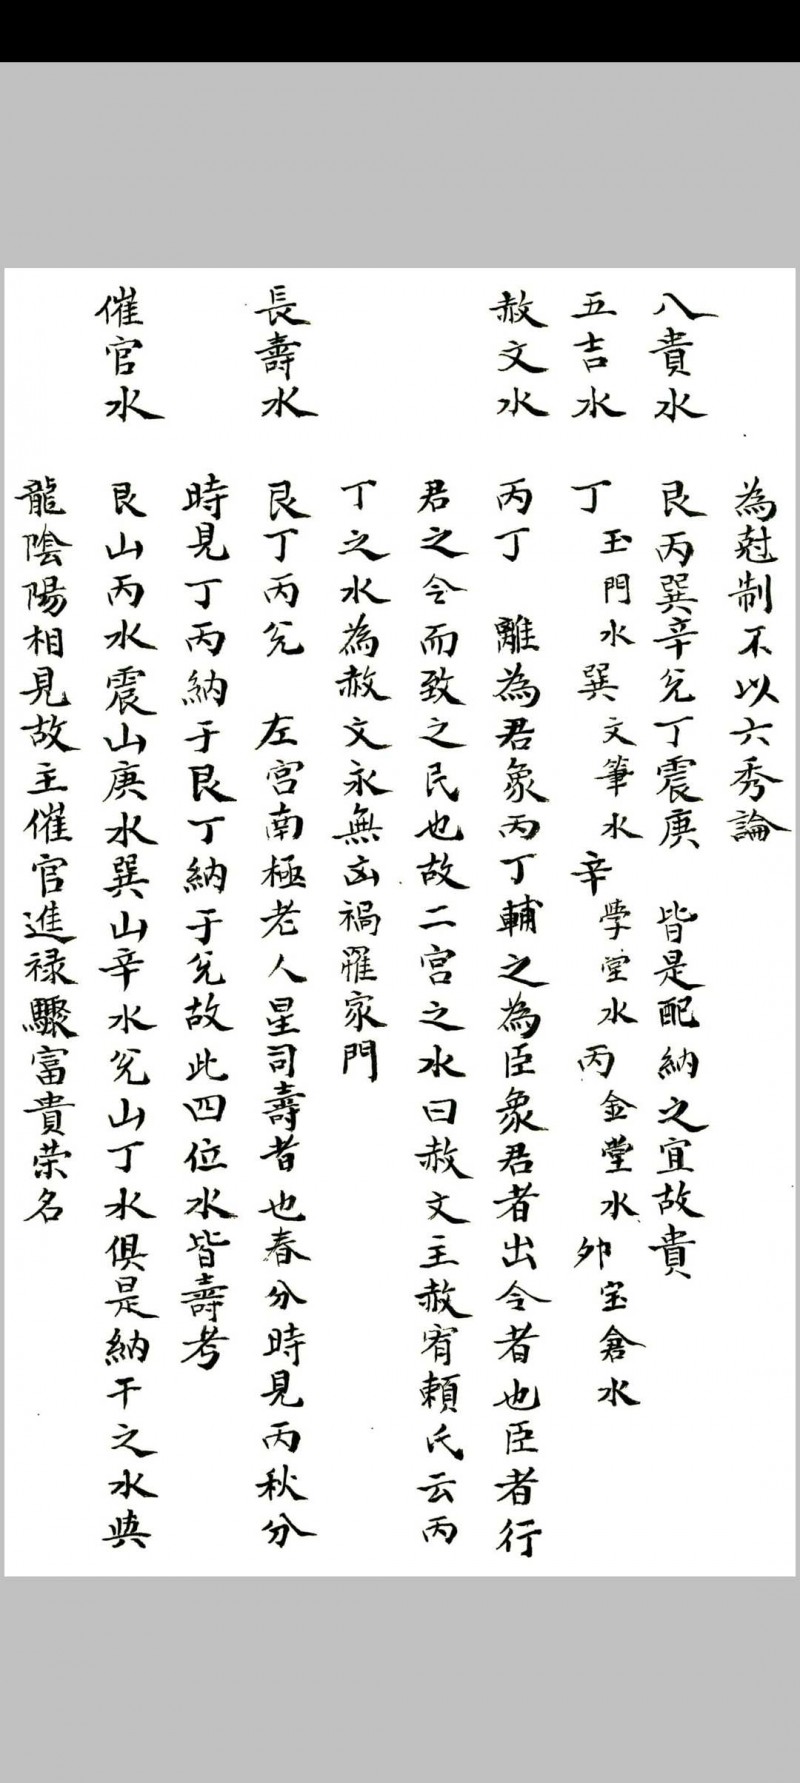 為尅制不以六秀論
八貴水 艮丙巽辛兊丁震庚 皆是配納之宜故貴
五吉水 丁玉門水巽文筆水辛學堂水丙金堂水夘宝倉水
赦文水 丙丁 離為君象丙丁輔之為臣象君者出令者也臣者行
君之令而致之民也故二宮之水曰赦文主赦宥頼氏云丙
丁之水為赦文永無凶禍罹家門
長壽水 艮丁丙兊 左宮南極老人星司壽者也春分時見丙秋分
時見丁丙納于艮丁納于兊故此四位水皆壽考
催官水 艮山丙水震山庚水巽山辛水兊山丁水俱是納干之水與
龍陰陽相見故主催官進禄驟富貴荣名